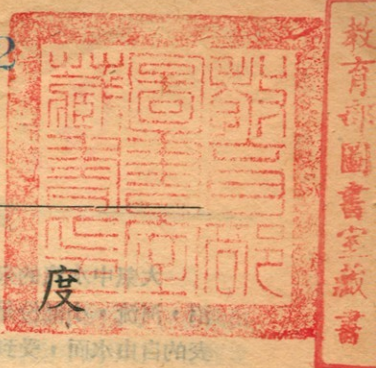 教育部圖書室藏書
教育部
圖書室
藏書印
2
度